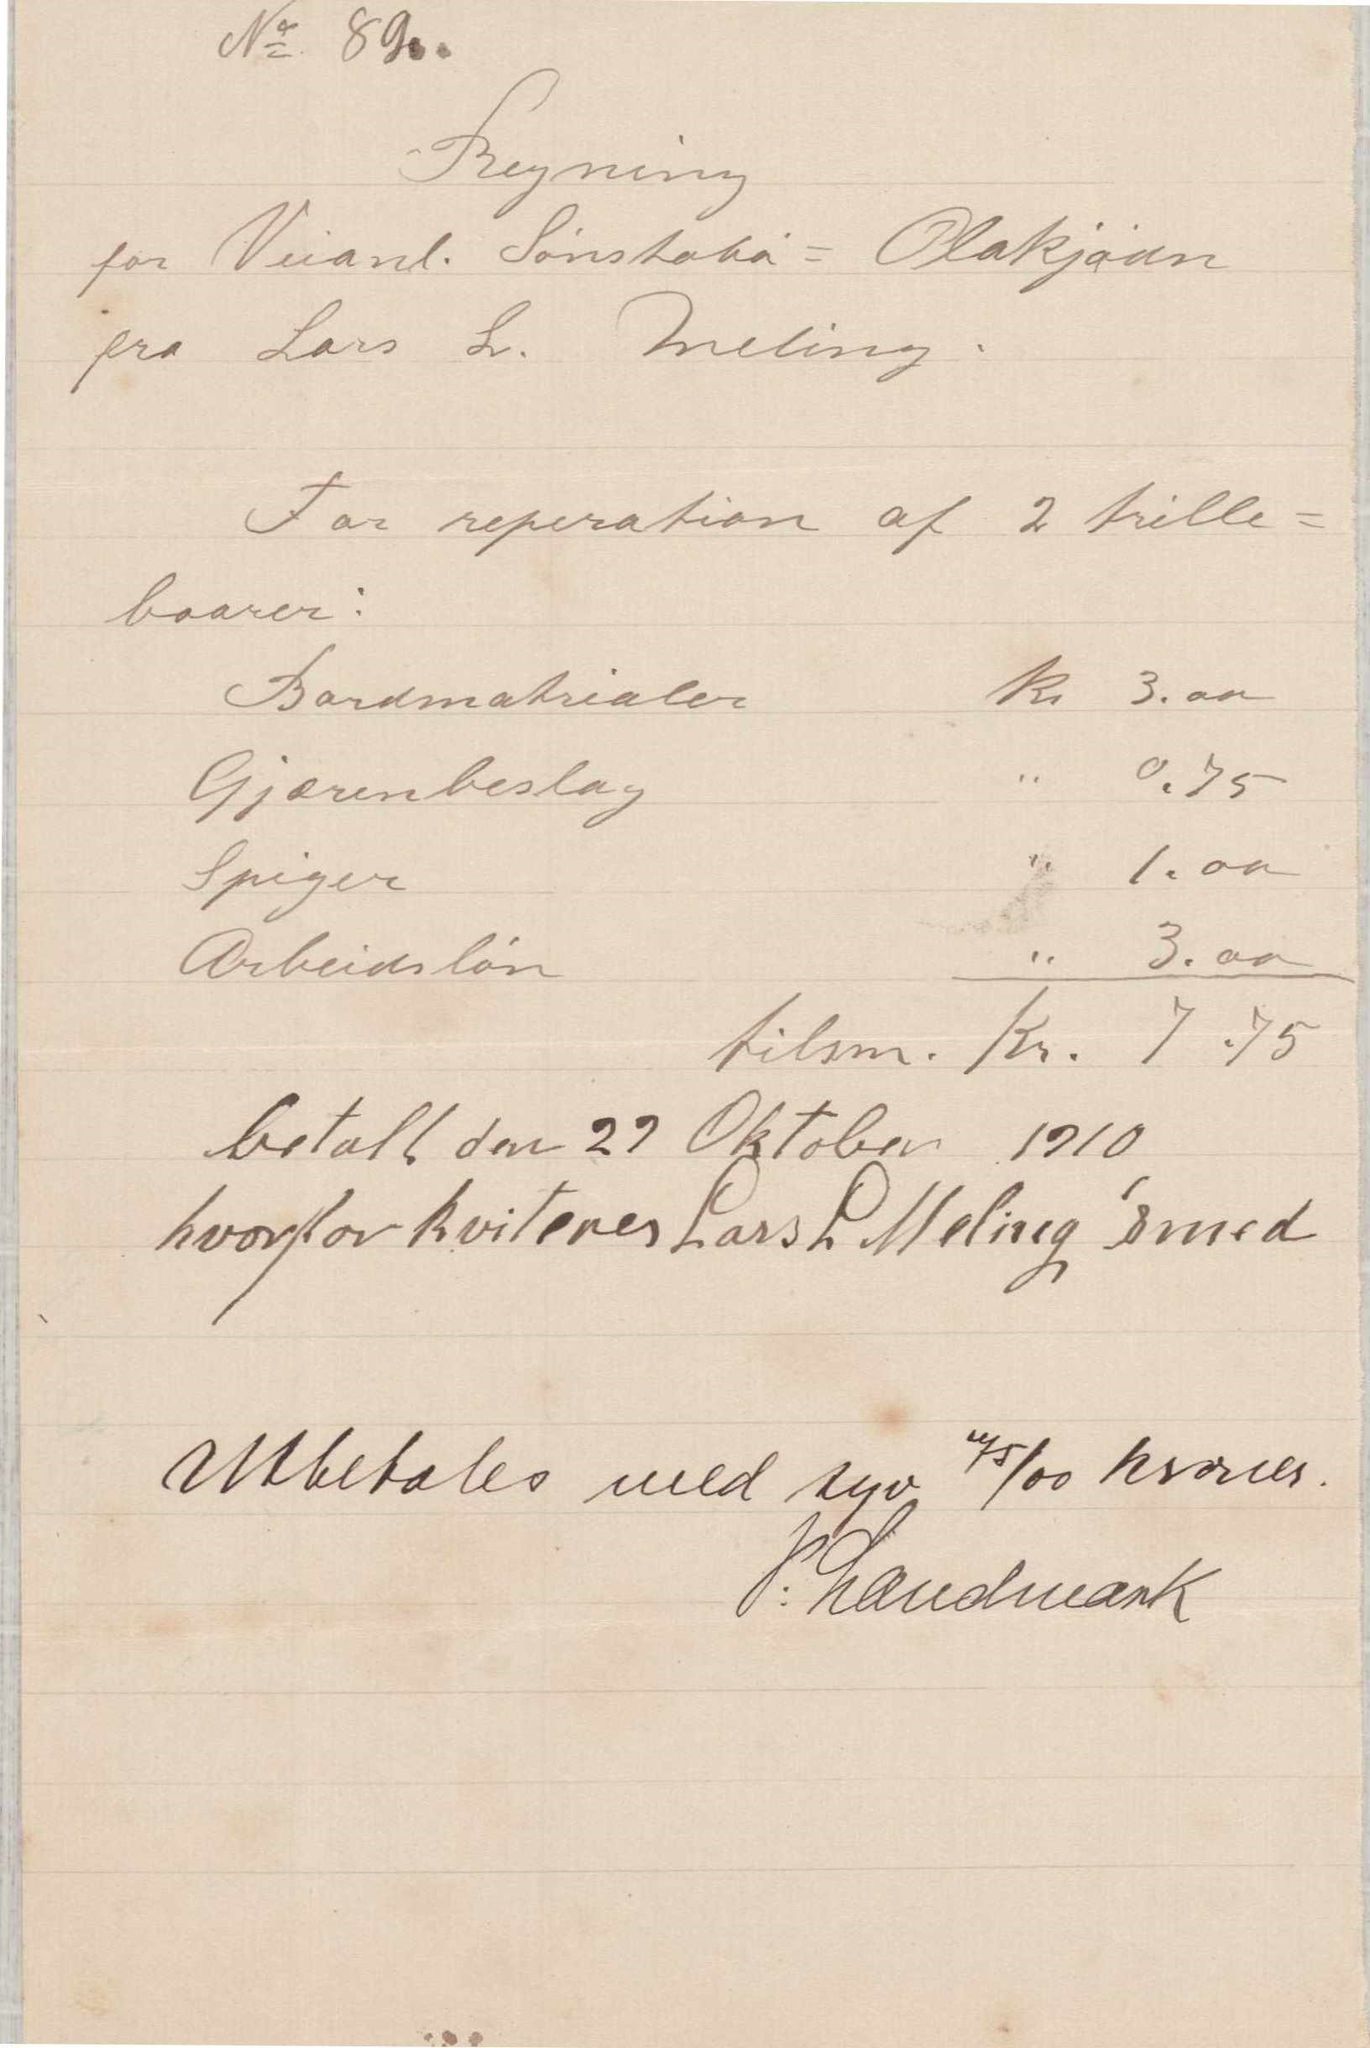 No 89.
Regning
for Veianl. Sønstabø = Olakjødn
fra Lars L. Meling.
For reperation af 2 trille=
baarer:
Bordmatrialer Kr 3.00
Gjærenbeslag " 0.75
Spiger " 1.00
Arbeidsløn " 3.00
tilsm. Kr. 7.75
betalt den 29 Oktober 1910
hvorfor kviteres Lars L Meling smed
Utbetales med syv 75/00 kroner.
Landmark